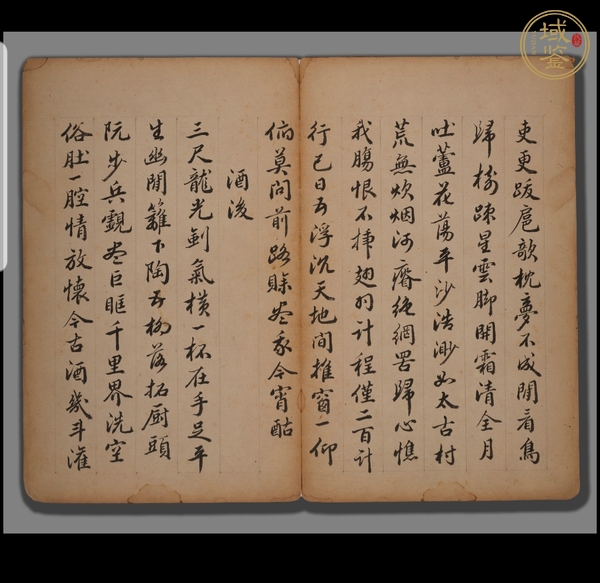 吏更跋扈歌枕夢不成閒看鳥
歸樹踈星雲脚開霜清全月
吐蘆花蕩平沙浩渺如太古村
荒無炊烟河瘠絕網罟歸心憔
我腸恨不揷翅羽計程僅二百計
行已日五浮沉天地間推窗一仰
俯莫問前路賖盡我今宵酤
酒後
三尺龍光劍氣橫一杯在手足平
生幽閒籬下陶五柳落拓厨頭
阮步兵覷盡巨眶千里界洗空
俗肚一腔情放懷今古酒幾斗灌
域鉴